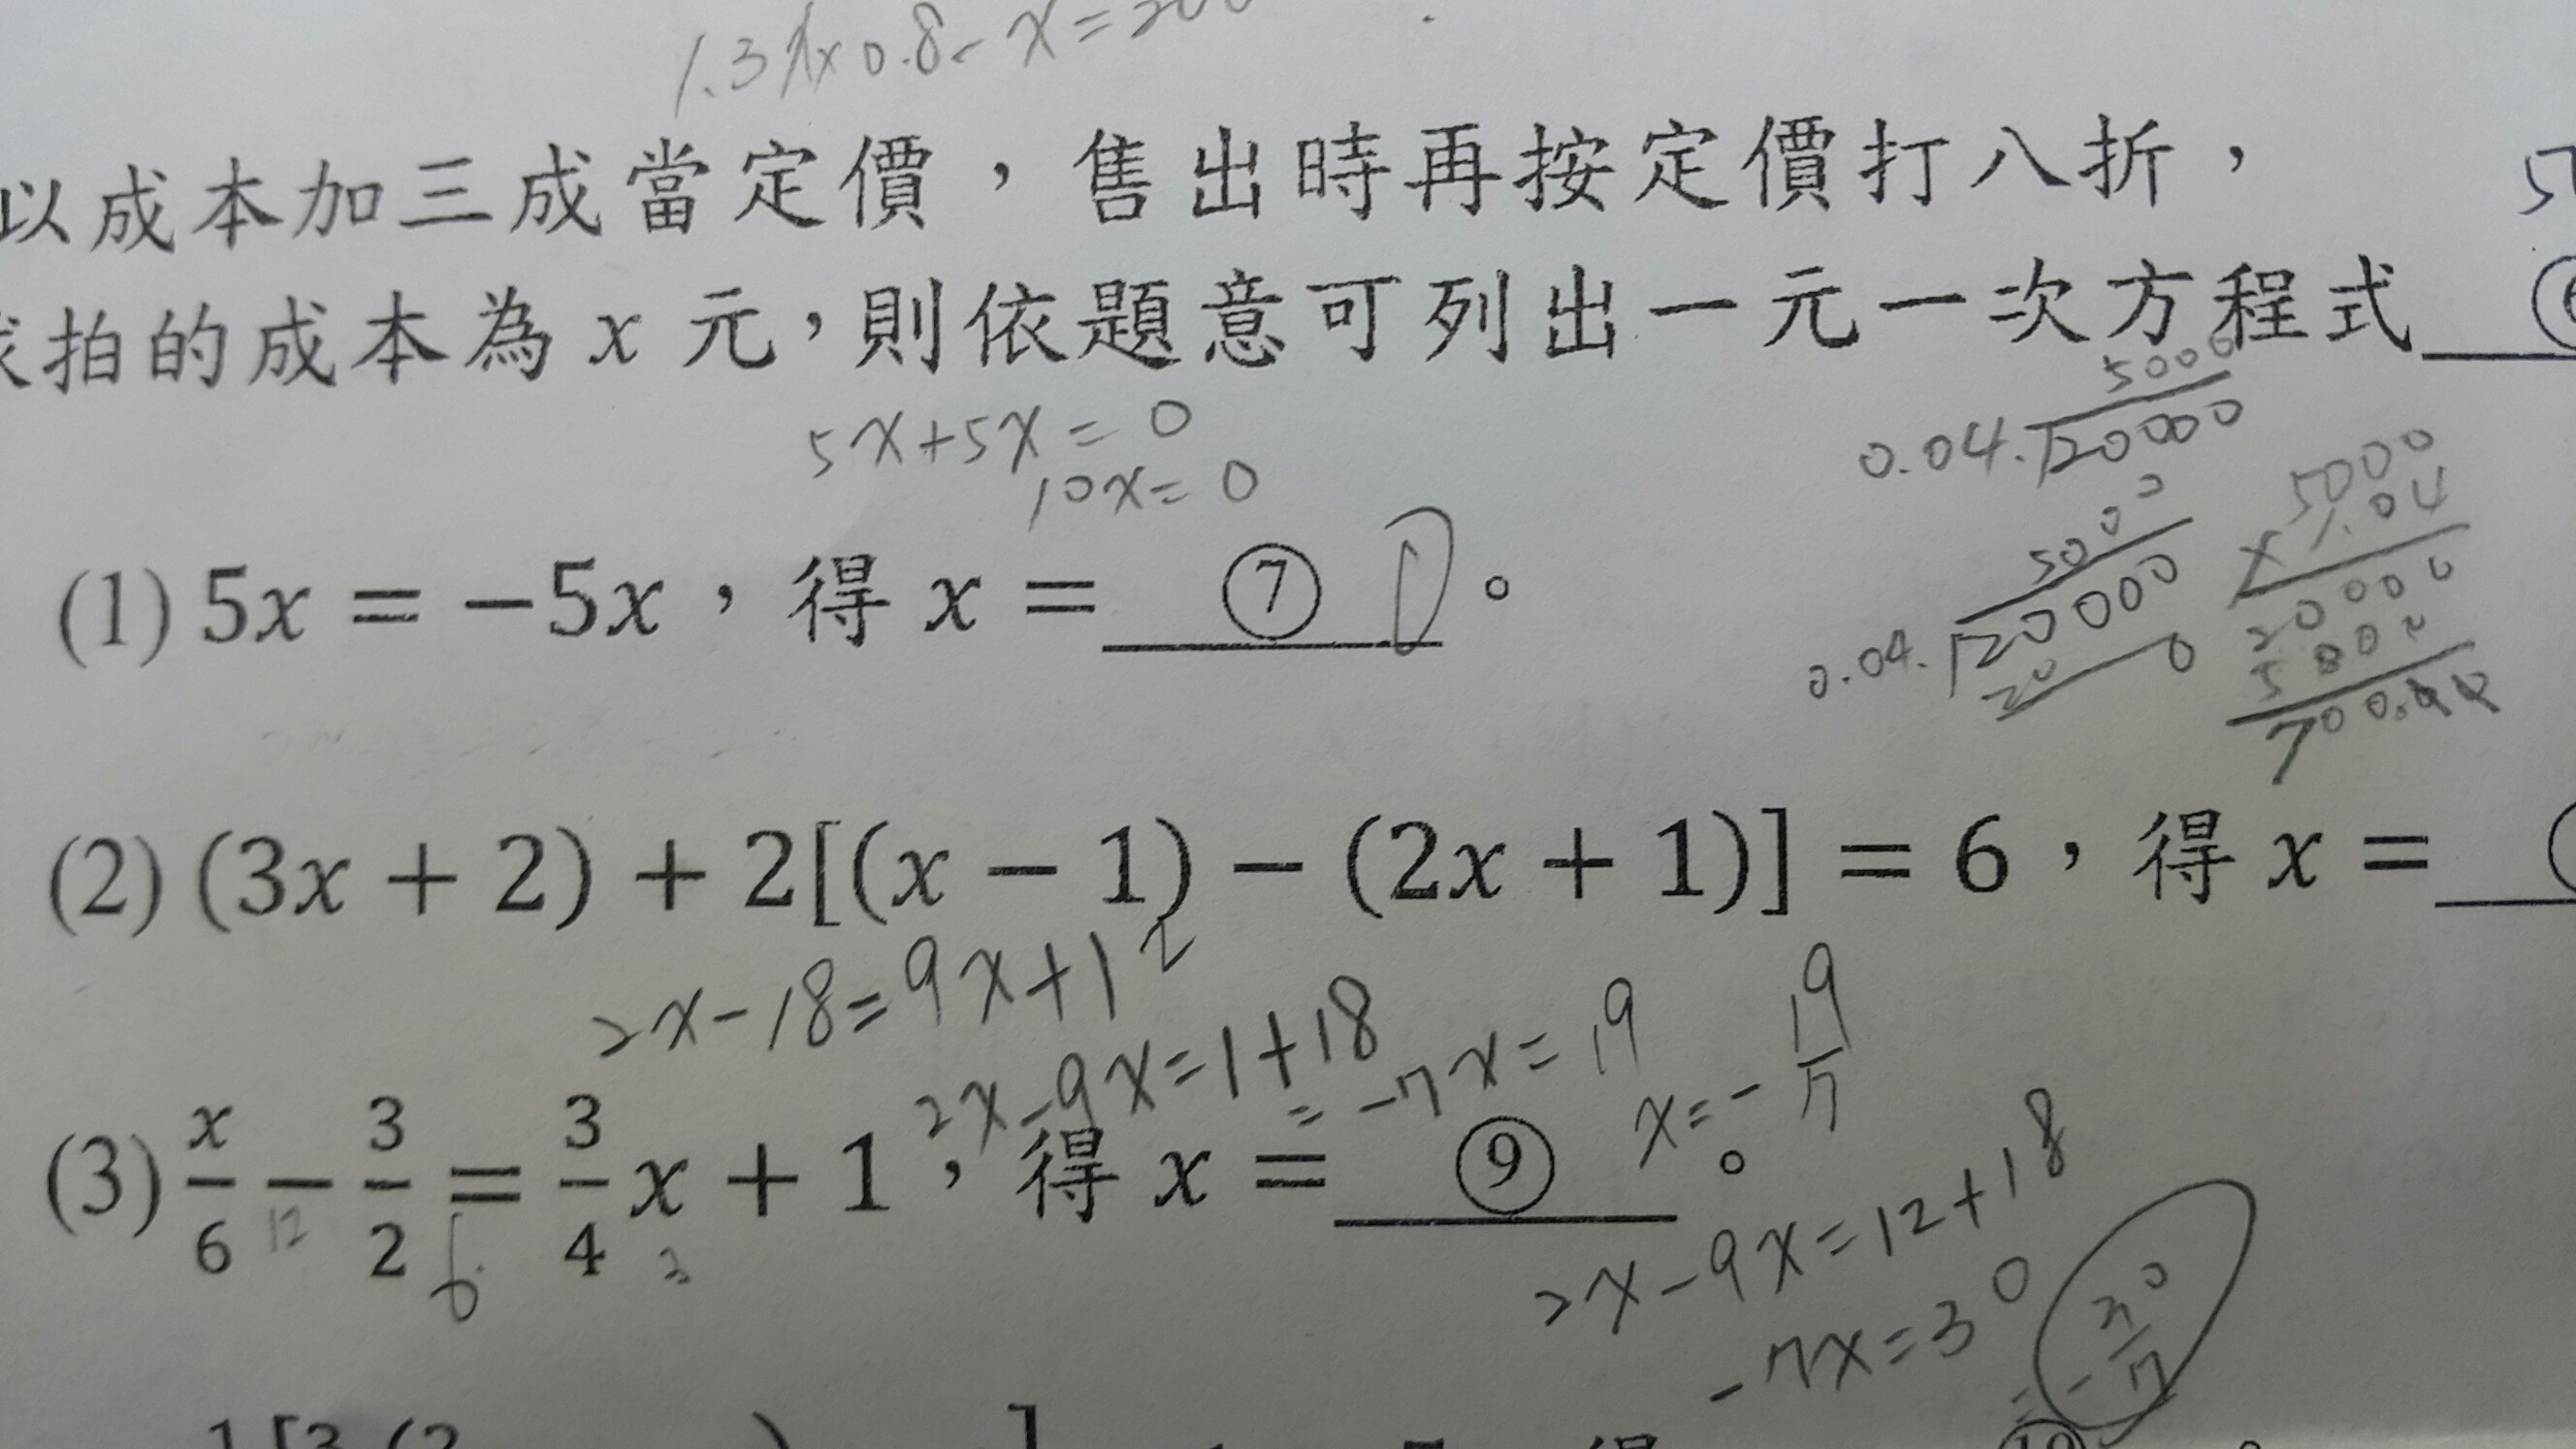 1.3x×0.8-x=200
以成本加三成當定價，售出時再按定價打八折，
拍的成本為 x 元，則依題意可列出一元一次方程式
5x+5x=0
10x=0
5000
0.04.√20000
5000
0.04.√20000
20
0
5000
×1.04
20000
5000
(1) 5x = −5x，得 x = ⑦ 0。
(2) (3x + 2) + 2[(x − 1) − (2x + 1)] = 6，得 x =
2x-18=9x+12
2x-9x=1+18
=-7x=19
x=-19/7
(3) x/6 − 3/2 = 3/4 x + 1，得 x = ⑨。
12 6 3
2x-9x=12+18
-7x=30
=-30/7
⑩